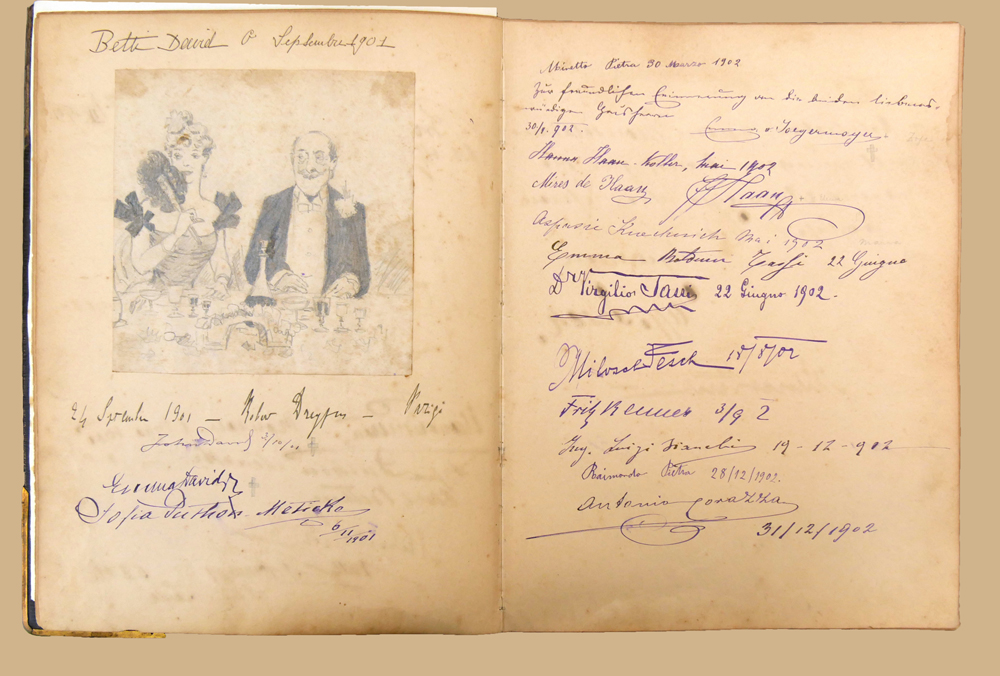 Betti David 8 Septembre 1901
24 1901 — Dreyfus — Parigi
David
Emma David
Sofia Puthon - Meticke
6/11 1901
Miretto Pietra 30 Marzo 1902
Zur freundlichen Erinnerung an die beiden liebens-
würdigen Hausherren
30/ 902. Emma v.
Hanna Haan-Koller, Mai 1902
Mires de Haan Haan
Aspasie Mai 1902
Emma 22 Giugno
Dr Virgilio 22 Giugno 1902.
Milosch Fesch 18/8/02
Fritz Renner 3/9 2
Ing. Luigi Bianchi 19-12-902
Raimondo Pietra 28/12/1902.
Antonio Corazza
31/12/1902